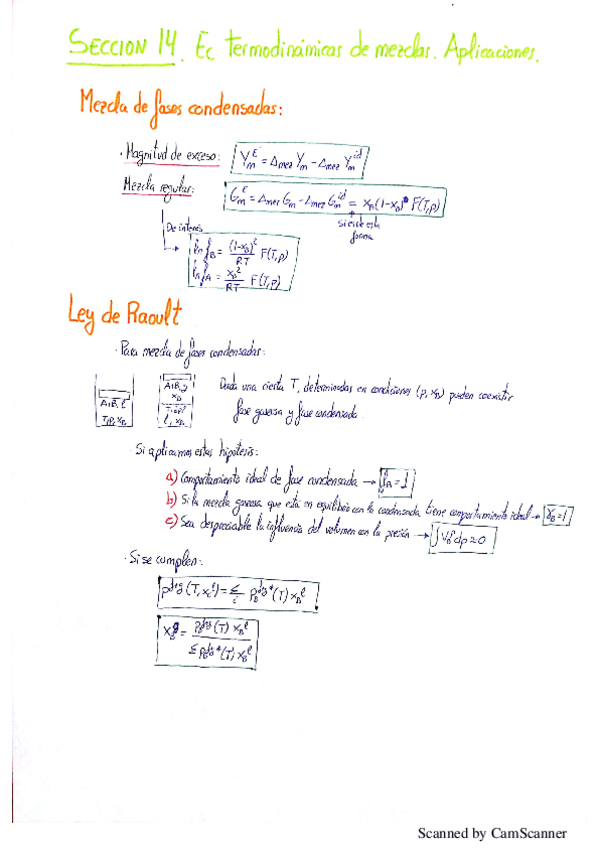 SECCION 14. Ec termodinámicas de mezclas. Aplicaciones.
Mezcla de fases condensadas:
· Magnitud de exceso: Y_m^E = Δmez Y_m - Δmez Y_m^id
Mezcla regular: G_m^E = Δmez G_m - Δmez G_m^id = x_B(1-x_B) F(T,p)
si es de esta
forma
De interés
ln f_B = (1-x_B)²/RT F(T,p)
ln f_A = x_B²/RT F(T,p)
Ley de Raoult
· Para mezcla de fases condensadas:
A+B, l
T,p, x_B
A+B, g
x_B
l, x_B
Dada una cierta T, determinadas en condiciones (p, x_B) pueden coexistir
fase gaseosa y fase condensada.
· Si aplicamos estas hipótesis:
a) Comportamiento ideal de fase condensada → f_A = 1
b) Si la mezcla gaseosa que está en equilibrio con la condensada tiene comportamiento ideal → γ_B = 1
c) Sea despreciable la influencia del volumen con la presión → ∫ V dp ≈ 0
· Si se cumplen:
(T, x^l) = Σ (T) x_B^l
x_B^g = (T) x_B^l
Σ (T) x_B^l
Scanned by CamScanner